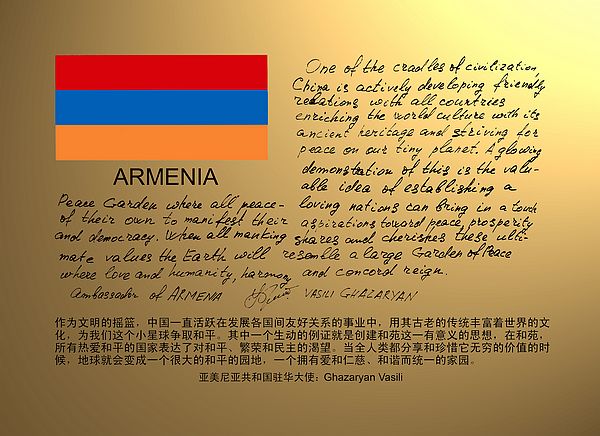 One of the cradles of civilization,
China is actively developing friendly
relations with all countries
enriching the world culture with its
ancient heritage and striving for
peace on our tiny planet. A glowing
demonstration of this is the valu-
able idea of establishing a
ARMENIA
Peace Garden where all peace-loving nations can bring in a touch
of their own to manifest their aspirations toward peace, prosperity
and democracy. When all manking shares and cherishes these ulti-
mate values the Earth will resemble a large Garden of Peace
where love and humanity, harmony and concord reign.
Ambassador of ARMENIA VASILI GHAZARYAN
作为文明的摇篮，中国一直活跃在发展各国间友好关系的事业中，用其古老的传统丰富着世界的文
化，为我们这个小星球争取和平。其中一个生动的例证就是创建和苑这一有意义的思想，在和苑，
所有热爱和平的国家表达了对和平、繁荣和民主的渴望。当全人类都分享和珍惜它无穷的价值的时
候，地球就会变成一个很大的和平的园地，一个拥有爱和仁慈、和谐而统一的家园。
亚美尼亚共和国驻华大使：Ghazaryan Vasili